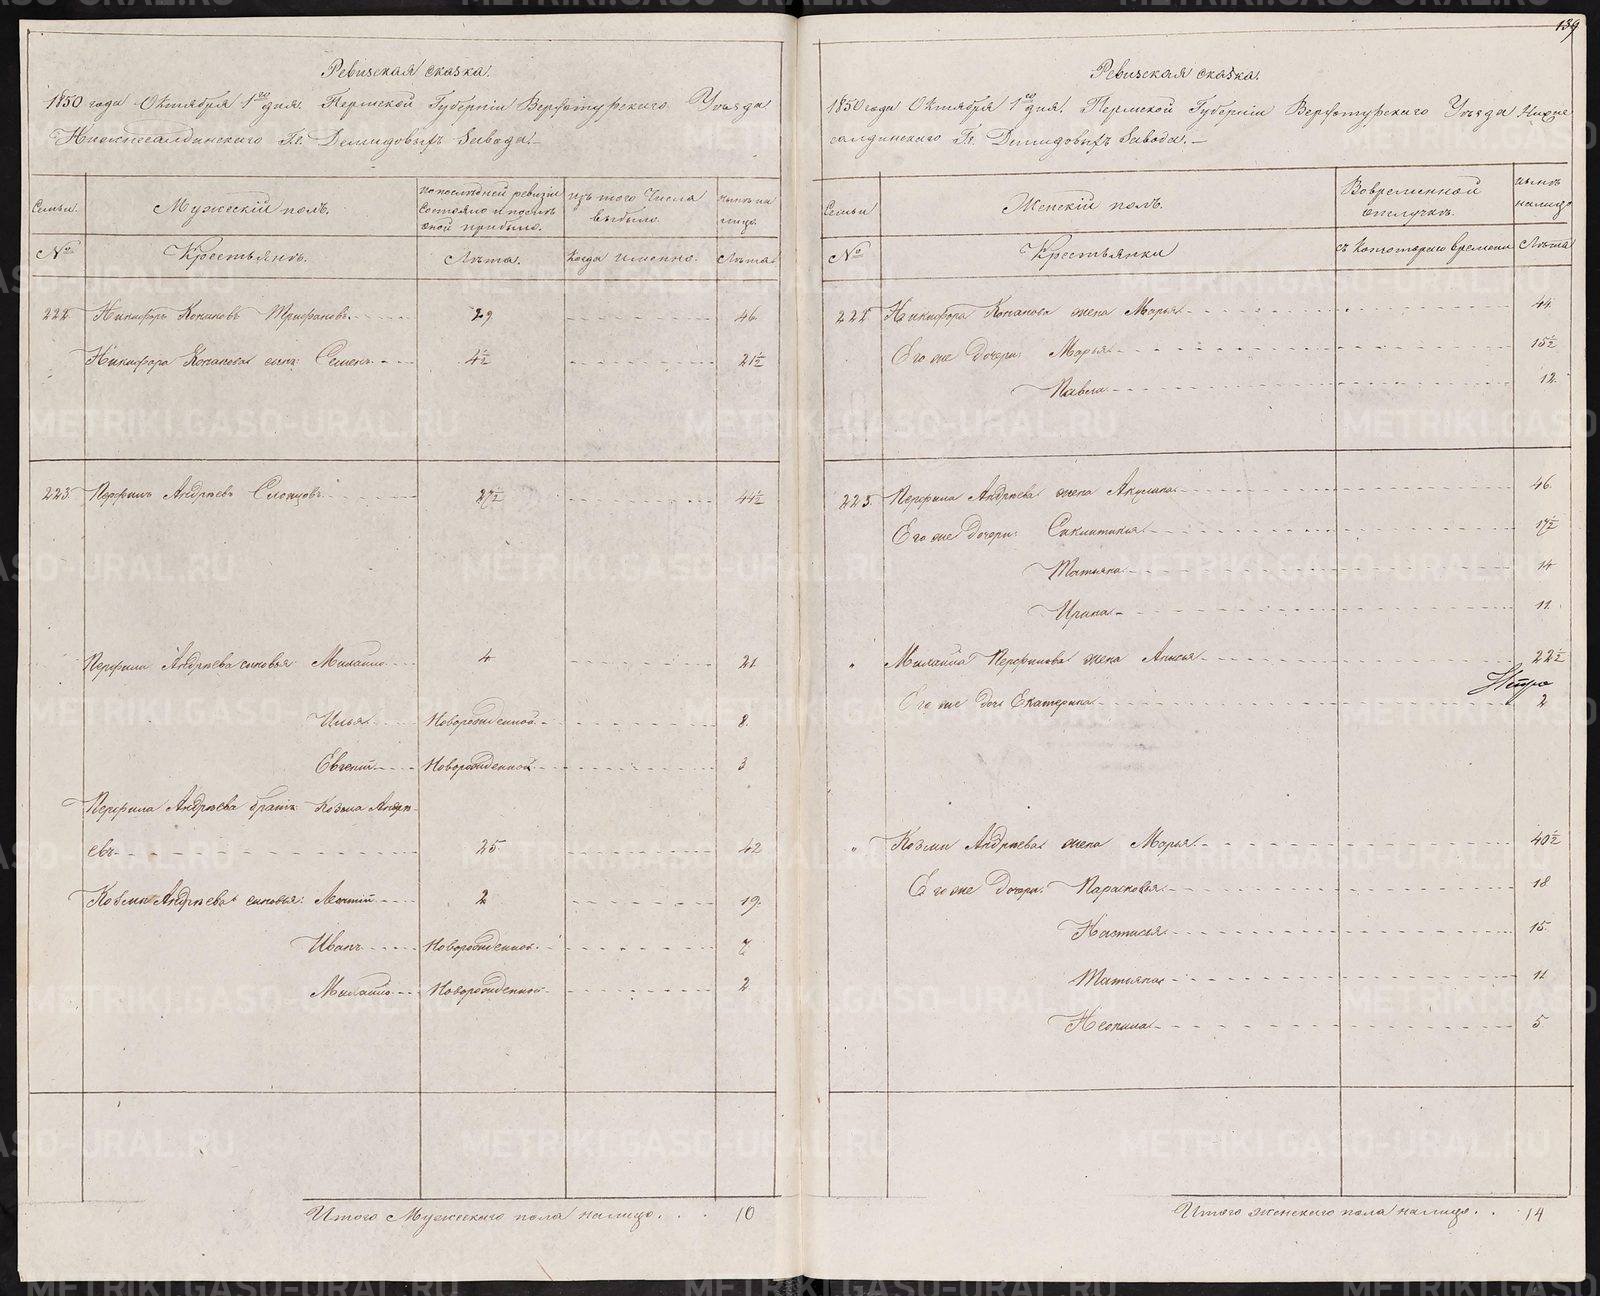 Ревизская сказка.
1850 года Октября 1го дня. Пермской Губернiи Верхотурскаго Уѣзда
Нижнесалдинскаго Гг. Демидовыхъ Завода.
Семьи. Мужескiй полъ. По последней ревизiи состояло и послѣ оной прибыло. Изъ того числа выбыло. Нынѣ на лицо.
№ Крестьянъ. Лѣта. Когда именно. Лѣта
222 Никифоръ Конановъ Трифановъ. 29. 46
Никифора Конанова сынъ: Семенъ 4½ 21½
223. Перфилъ Андрѣевъ Слонцовъ 27½ 44½
Перфила Андрѣева сыновья Михайло 4 21
Илья Новорожденной 8.
Евгенiй Новорожденной 3
Перфила Андрѣева братъ Козма Андрѣ-
евъ 25. 42
Козмы Андрѣева сыновья: Леонтiй 2 19.
Иванъ Новорожденной. 7
Михайло Новорожденной 2
Итого Мужескаго пола на лицо. 10
139
Ревизская сказка.
1850 года Октября 1го дня. Пермской Губернiи Верхотурскаго Уѣзда Нижне
салдинскаго Гг. Демидовыхъ Завода.
Семьи Женскiй полъ. Во временной отлучкѣ. Нынѣ на лицо
№ Крестьянки съ котораго времени Лѣта
222 Никифора Конанова жена Марья 44
Его же дочери: Марья 15½
Павла 12.
223. Перфила Андрѣева жена Акулина 46.
Его же дочери: Сиклитинья 17½
Татьяна 14
Ирина 11.
" Михайла Перфилова жена Анисья 22½
Его же дочь Екатерина 2
" Козмы Андрѣева жена Марья 40½
Его же дочери: Парасковья 18
Настасья 15.
Татьяна 11
Неонила 5
Итого женскаго пола на лицо. 14
METRIKI.GASO-URAL.RU